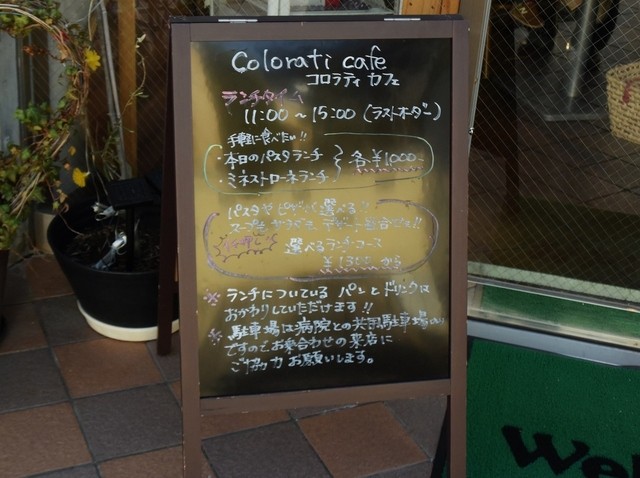 Colorati cafe
コロラティ カフェ
ランチタイム
11:00 ~ 15:00 (ラストオーダー)
手軽に食べたい!!
・本日のパスタランチ
・ミネストローネランチ
各¥1,000-
パスタや ピザが 選べる!!
選べるランチコース
¥1,300から
※ ランチについている パンとドリンクは
おかわりしていただけます!!
※ 駐車場は病院との共同駐車場
ですのでお乗合わせの来店に
ご協力 お願いします。
Wel